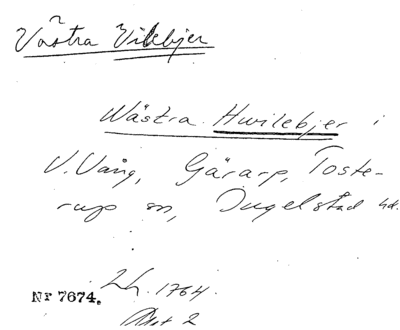 Västra Vilebjer
Wästra Hwilebjer i
V. Vång, Gärarp, Toste-
rup sn, Ingelstad hd.
Lh. 1764.
Nr 7674.
Akt 2